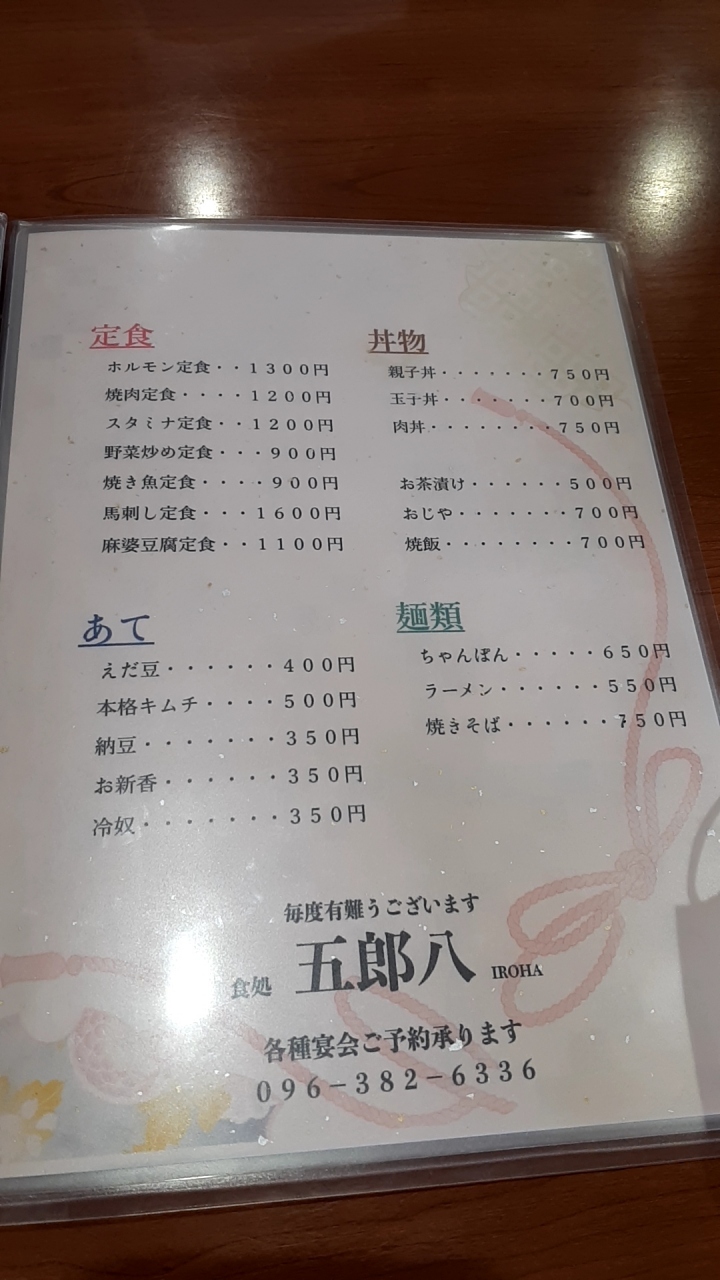 定食
ホルモン定食・・１３００円
焼肉定食・・・・１２００円
スタミナ定食・・１２００円
野菜炒め定食・・・９００円
焼き魚定食・・・・９００円
馬刺し定食・・・１６００円
麻婆豆腐定食・・１１００円
丼物
親子丼・・・・・・・７５０円
玉子丼・・・・・・・７００円
肉丼・・・・・・・・７５０円
お茶漬け・・・・・・５００円
おじや・・・・・・・７００円
焼飯・・・・・・・・７００円
あて
えだ豆・・・・・・４００円
本格キムチ・・・・５００円
納豆・・・・・・・３５０円
お新香・・・・・・３５０円
冷奴・・・・・・・３５０円
麺類
ちゃんぽん・・・・・６５０円
ラーメン・・・・・・５５０円
焼きそば・・・・・・７５０円
毎度有難うございます
食処 五郎八 IROHA
各種宴会ご予約承ります
０９６－３８２－６３３６